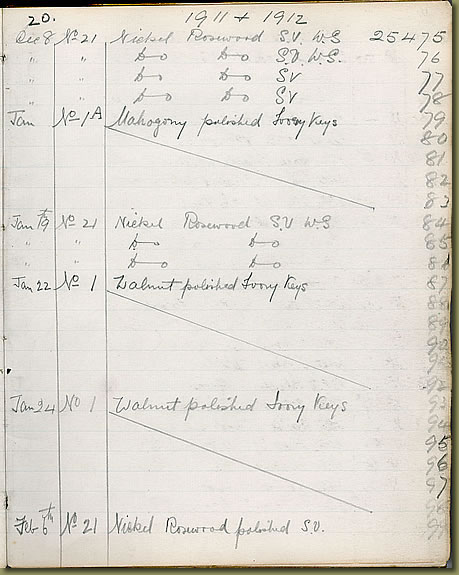 20. 1911 + 1912
Dec 8 No 21 Nickel Rosewood S.V. W.S 25475
" " Do Do S.V. W.S. 76
" " Do Do SV 77
" " Do Do SV 78
Jan No 1A Mahogony polished Ivory Keys 79
80
81
82
83
Jan 19th No 21 Nickel Rosewood S.V W.S 84
" " Do Do 85
" " Do Do
Jan 22 No 1 Walnut polished Ivory Keys 87
88
89
90
Jan 24 No 1 Walnut polished Ivory Keys 93
94
95
96
97
Feb 6th No 21 Nickel Rosewood polished S.V. 98